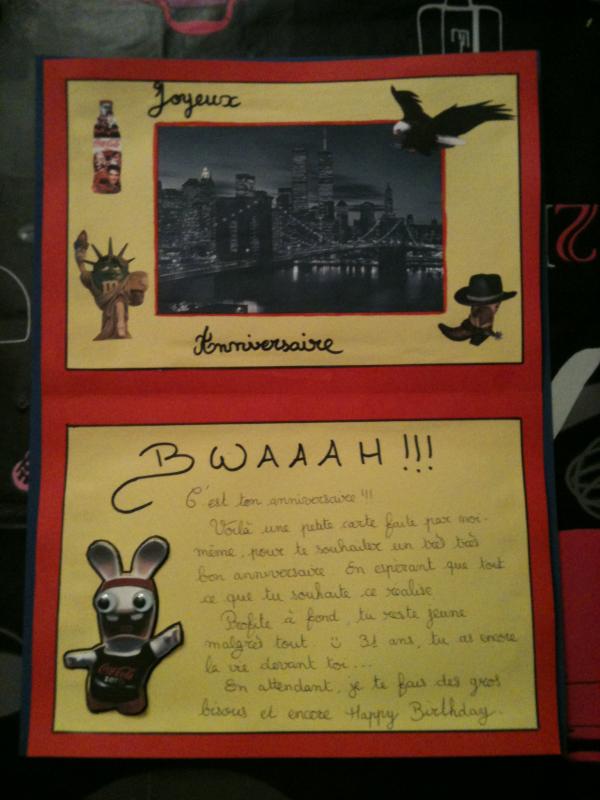 Joyeux
Coca-Cola
Anniversaire
BWAAAH !!!
C'est ton anniversaire !!!
Voilà une petite carte faite par moi-
même, pour te souhaiter un très très
bon anniversaire. En esperant que tout
ce que tu souhaite ce realise.
Profite à fond, tu reste jeune
malgrès tout. 31 ans, tu as encore
la vie devant toi...
En attendant, je te fais des gros
bisous et encore Happy Birthday.
Coca-Cola